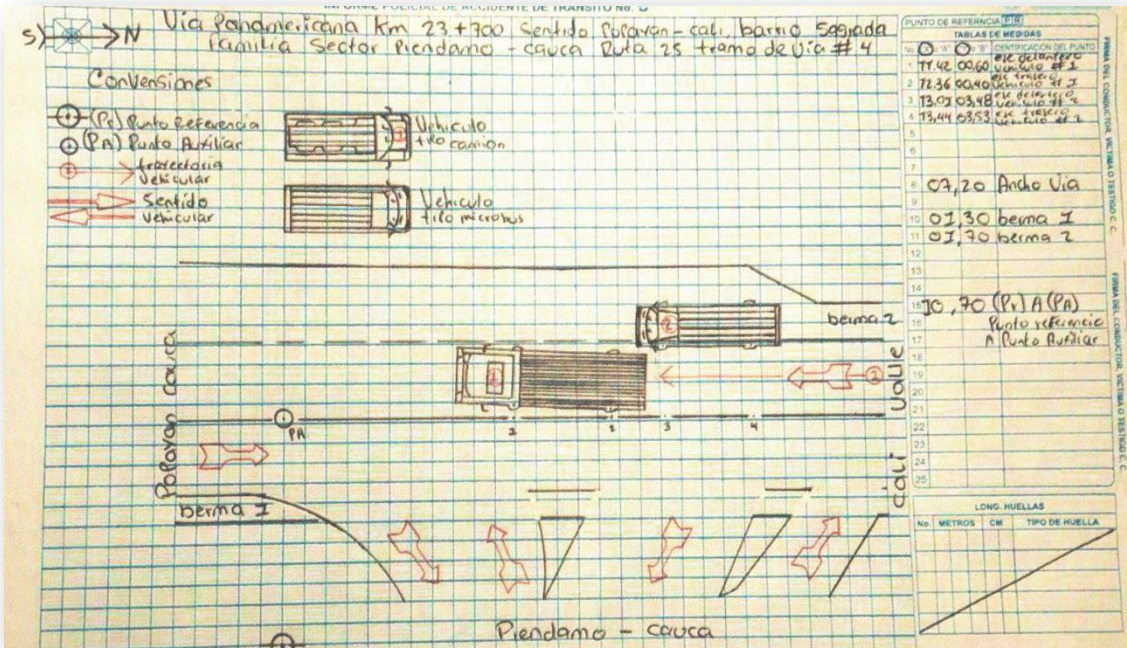 INFORME POLICIAL DE ACCIDENTE DE TRANSITO No. D
S N
Via Panamericana Km 23+700 Sentido Popayan - cali, barrio Sagrada
Familia Sector Piendamo - cauca Ruta 25 tramo de via # 4
Convensiones
(Pr) Punto Referencia
(PA) Punto Auxiliar
trayectoria
Vehicular
Sentido
Vehicular
1
Vehiculo
tipo camion
Vehiculo
tipo microbus
berma 2
2
1
2
Popayan Cauca
cali Valle
PA
3
4
berma 1
Piendamo - cauca
PUNTO DE REFERENCIA PR
TABLAS DE MEDIDAS
No "A" "B" IDENTIFICACIÓN DEL PUNTO
1 11.42 00,60 eje delantero
vehiculo # 1
2 12.36 00,40 eje trasero
vehiculo # 1
3 13.01 03,48 eje delantero
vehiculo # 2
4 13,44 03,53 eje trasero
vehiculo # 2
5
6
7
8 07,20 Ancho Via
9
10 01,30 berma 1
11 01,70 berma 2
12
13
14
15 10,70 (Pr) A (PA)
16 Punto referencia
17 A Punto Auxiliar
18
19
20
21
22
23
24
25
LONG. HUELLAS
No. METROS CM TIPO DE HUELLA
FIRMA DEL CONDUCTOR, VICTIMA O TESTIGO C. C.
FIRMA DEL CONDUCTOR, VICTIMA O TESTIGO C. C.